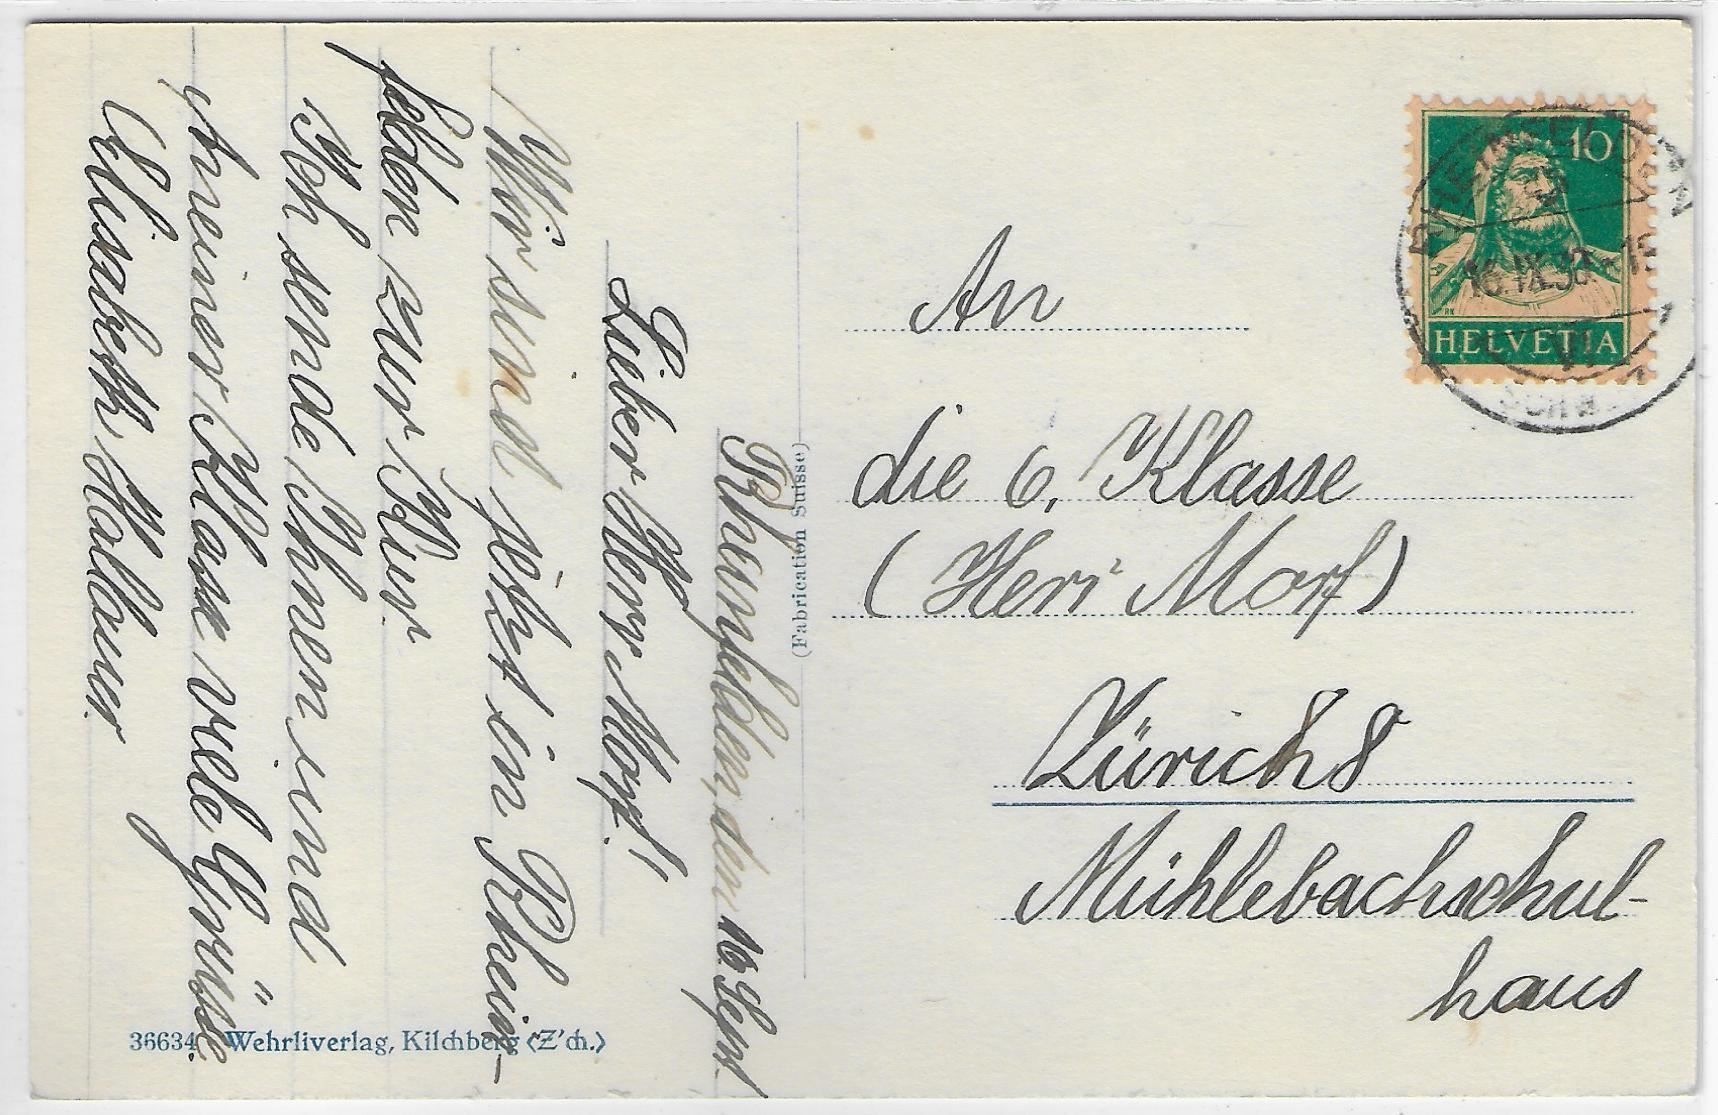 Rheinfelden, den 16. Sept
Lieber Herr Morf!
Wir sind jetzt in Rhein-
felden zur Kur.
Ich sende Ihnen und
meiner Klasse viele Grüsse.
Elisabeth Hallauer
(Fabrication Suisse)
36634 Wehrliverlag, Kilchberg (Z'ch.)
10
HELVETIA
RHEINFELDEN
16.IX.30
An
die 6. Klasse
(Herr Morf)
Zürich 8
Mühlebachschul-
haus